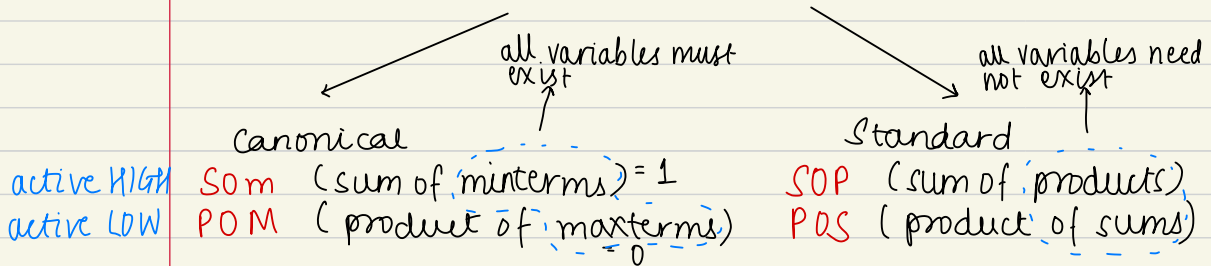 all variables must
exist
all variables need
not exist
Canonical
Standard
active HIGH SOm (sum of minterms) = 1
SOP (sum of products)
active LOW POM (product of maxterms)
= 0
POS (product of sums)